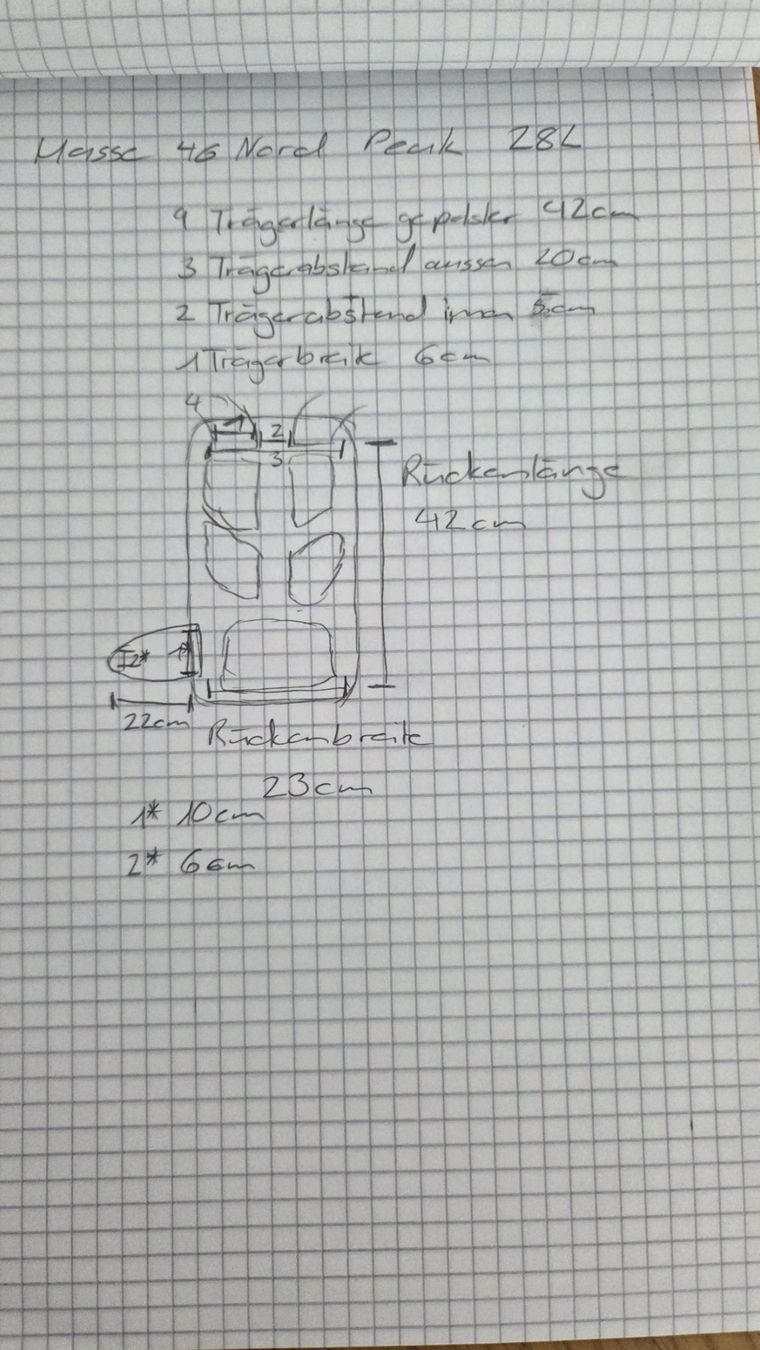 Masse 46 Nord Peak 28L
4 Trägerlänge gepolster 42cm
3 Trägerabstand aussen 20cm
2 Trägerabstand innen 5cm
1 Trägerbreite 6cm
4
1
2
3
Rückenlänge
42cm
2*
1*
22cm
Rückenbreite
23cm
1* 10cm
2* 6cm